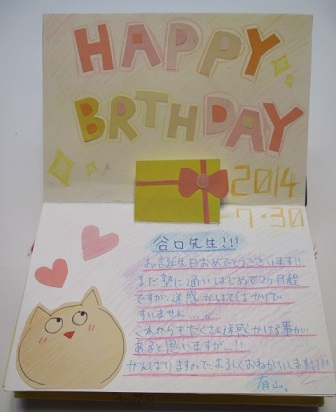 HAPPY
BRTHDAY
2014
7・30
谷口先生!!!
お誕生日おめでとうございます!!
まだ塾に通いはじめて2ヶ月程
ですが、迷惑かけてばかりで
すいません…。
これからもたくさん迷惑かける事が
あると思いますが…!!
がんばりますので、よろしくおねがいします!!!